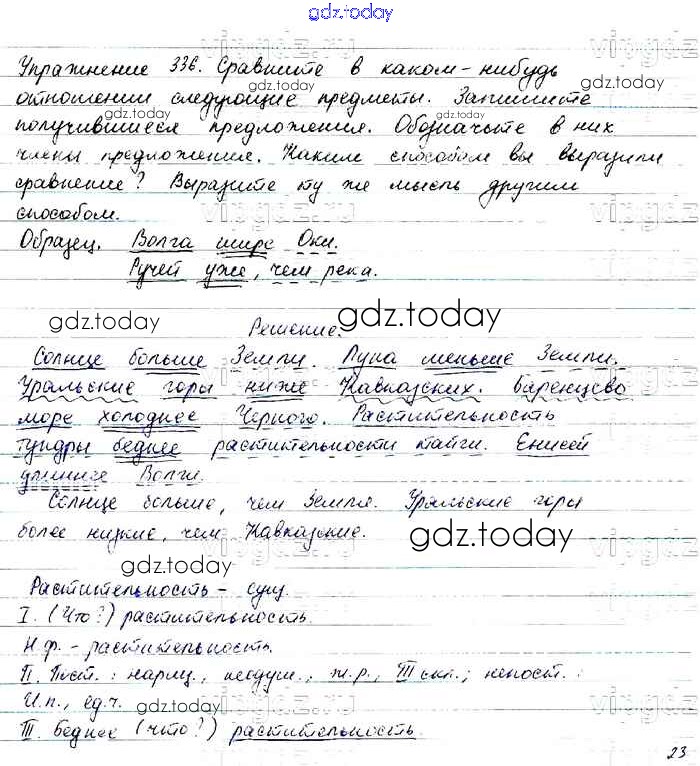 gdz.today
Упражнение 336. Сравните в каком-нибудь
отношении следующие предметы. Запишите
получившиеся предложения. Обозначьте в них
члены предложения. Каким способом вы выразили
сравнение? Выразите ту же мысль другим
способом.
Образец. Волга шире Оки.
Ручей уже, чем река.
Решение.
Солнце больше Земли. Луна меньше Земли.
Уральские горы ниже Кавказских. Баренцево
море холоднее Черного. Растительность
тундры беднее растительности тайги. Енисей
длиннее Волги.
Солнце больше, чем Земля. Уральские горы
более низкие, чем Кавказские.
gdz.today
Растительность - сущ.
I. (Что?) растительность.
Н.ф. - растительность.
II. Пост.: нариц., неодуш., ж.р., III скл.; непост.:
И.п., ед.ч.
III. Беднее (что?) растительность.
23